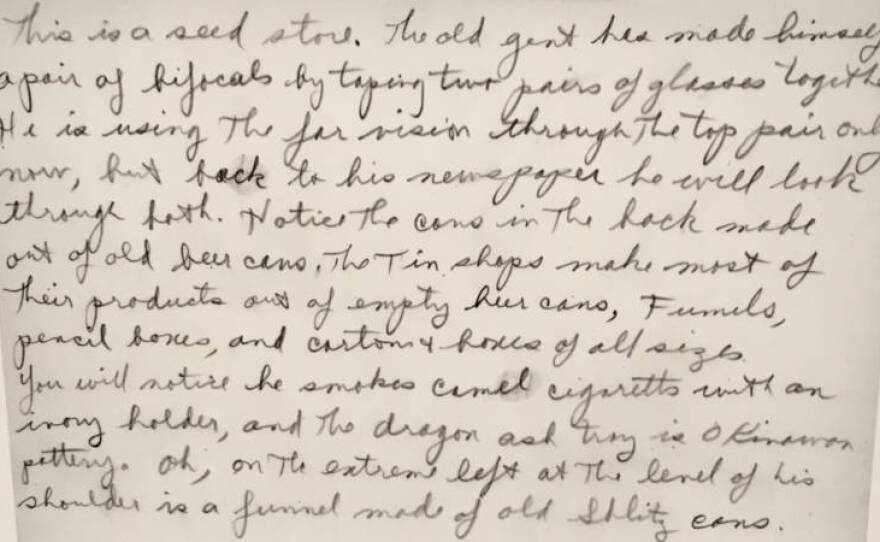 This is a seed store. The old gent has made himself
a pair of bifocals by taping two pairs of glasses togeth
He is using The far vision through The top pair only
now, but back to his newspaper he will look
through both. Notice The cans in The back made
out of old beer cans. The Tin shops make most of
Their products out of empty beer cans, Funnels,
pencil boxes, and cartons & boxes of all sizes.
You will notice he smokes camel cigaretts with an
ivory holder, and The dragon ash tray is Okinawan
pottery. Oh, on The extreme left at The level of his
shoulder is a funnel made of old Shlitz cans.